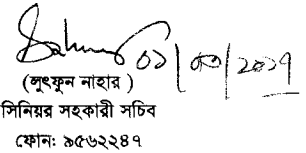 ০১/০৩/২০১৭
(লুৎফুন নাহার)
সিনিয়র সহকারী সচিব
ফোন: ৯৫৬২২৪৭